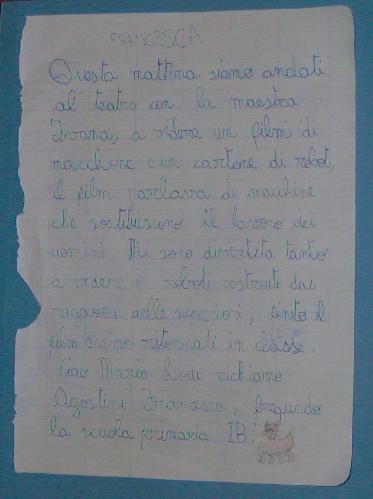 FRANCESCA
Questa mattina siamo andati
al teatro con la maestra
Ivana, a vedere un film di
macchine e un cartone di robot,
il film parlava di macchine
che sostituiscono il lavoro dei
uomini. Mi sono divertita tanto
a vedere i robot costruiti dai
ragazzi delle superiori, finito il
film siamo ritornati in classe.
Ciao Mario Lodi mi chiamo
Agostini Francesca, frequento
la scuola primaria IB.